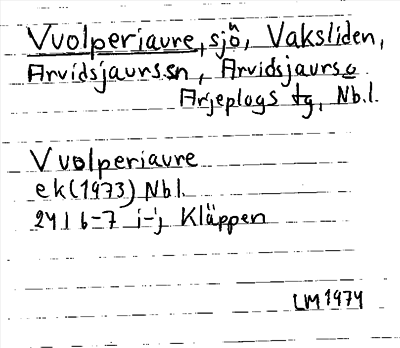 Vuolperiaure, sjön, Vaksliden,
Arvidsjaurs sn, Arvidsjaurs o
Arjeplogs tg, Nb.l.
Vuolperiaure
ek (1973) Nb l.
24 I 6-7 i-j Kläppen
LM 1974